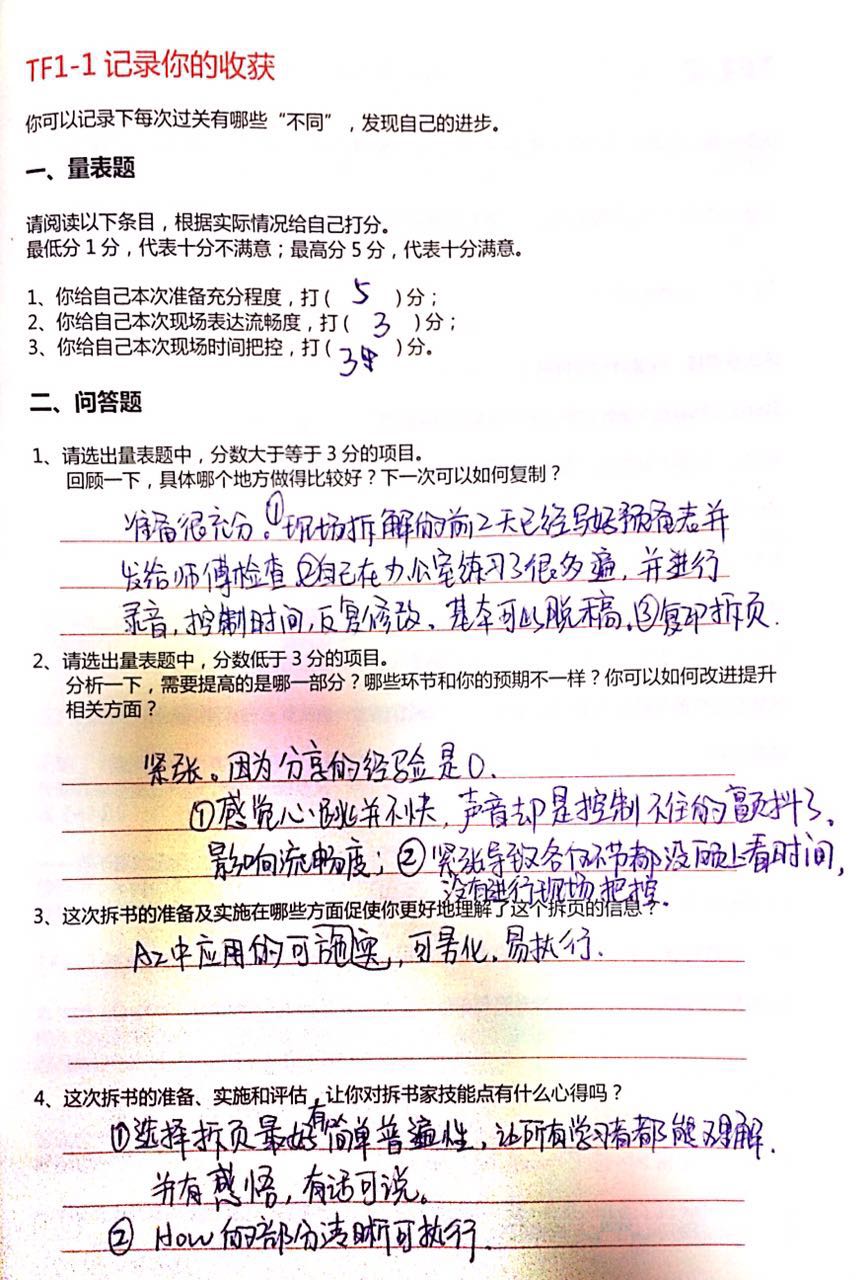 TF1-1 记录你的收获
你可以记录下每次过关有哪些“不同”，发现自己的进步。
一、量表题
请阅读以下条目，根据实际情况给自己打分。
最低分 1 分，代表十分不满意；最高分 5 分，代表十分满意。
1、你给自己本次准备充分程度，打（ 5 ）分；
2、你给自己本次现场表达流畅度，打（ 3 ）分；
3、你给自己本次现场时间把控，打（ 3 ）分。
二、问答题
1、请选出量表题中，分数大于等于 3 分的项目。
回顾一下，具体哪个地方做得比较好？下一次可以如何复制？
准备很充分。①现场拆解的前2天已经写好预备表并
发给师傅检查②自己在办公室练习了很多遍，并进行
录音，控制时间，反复修改、基本可以脱稿。③复印拆页.
2、请选出量表题中，分数低于 3 分的项目。
分析一下，需要提高的是哪一部分？哪些环节和你的预期不一样？你可以如何改进提升
相关方面？
紧张。因为分享的经验是0.
①感觉心跳并不快，声音却是控制不住的颤抖了，
影响流畅度；②紧张导致各个环节都没顾上看时间，
没有进行现场把控.
3、这次拆书的准备及实施在哪些方面促使你更好地理解了这个拆页的信息？
A2中应用的可施实，可易化。易执行.
4、这次拆书的准备、实施和评估，让你对拆书家技能点有什么心得吗？
①选择拆页最好有简单普遍性，让所有学习者都能理解.
并有感悟，有话可说。
② How的部分清晰可执行.